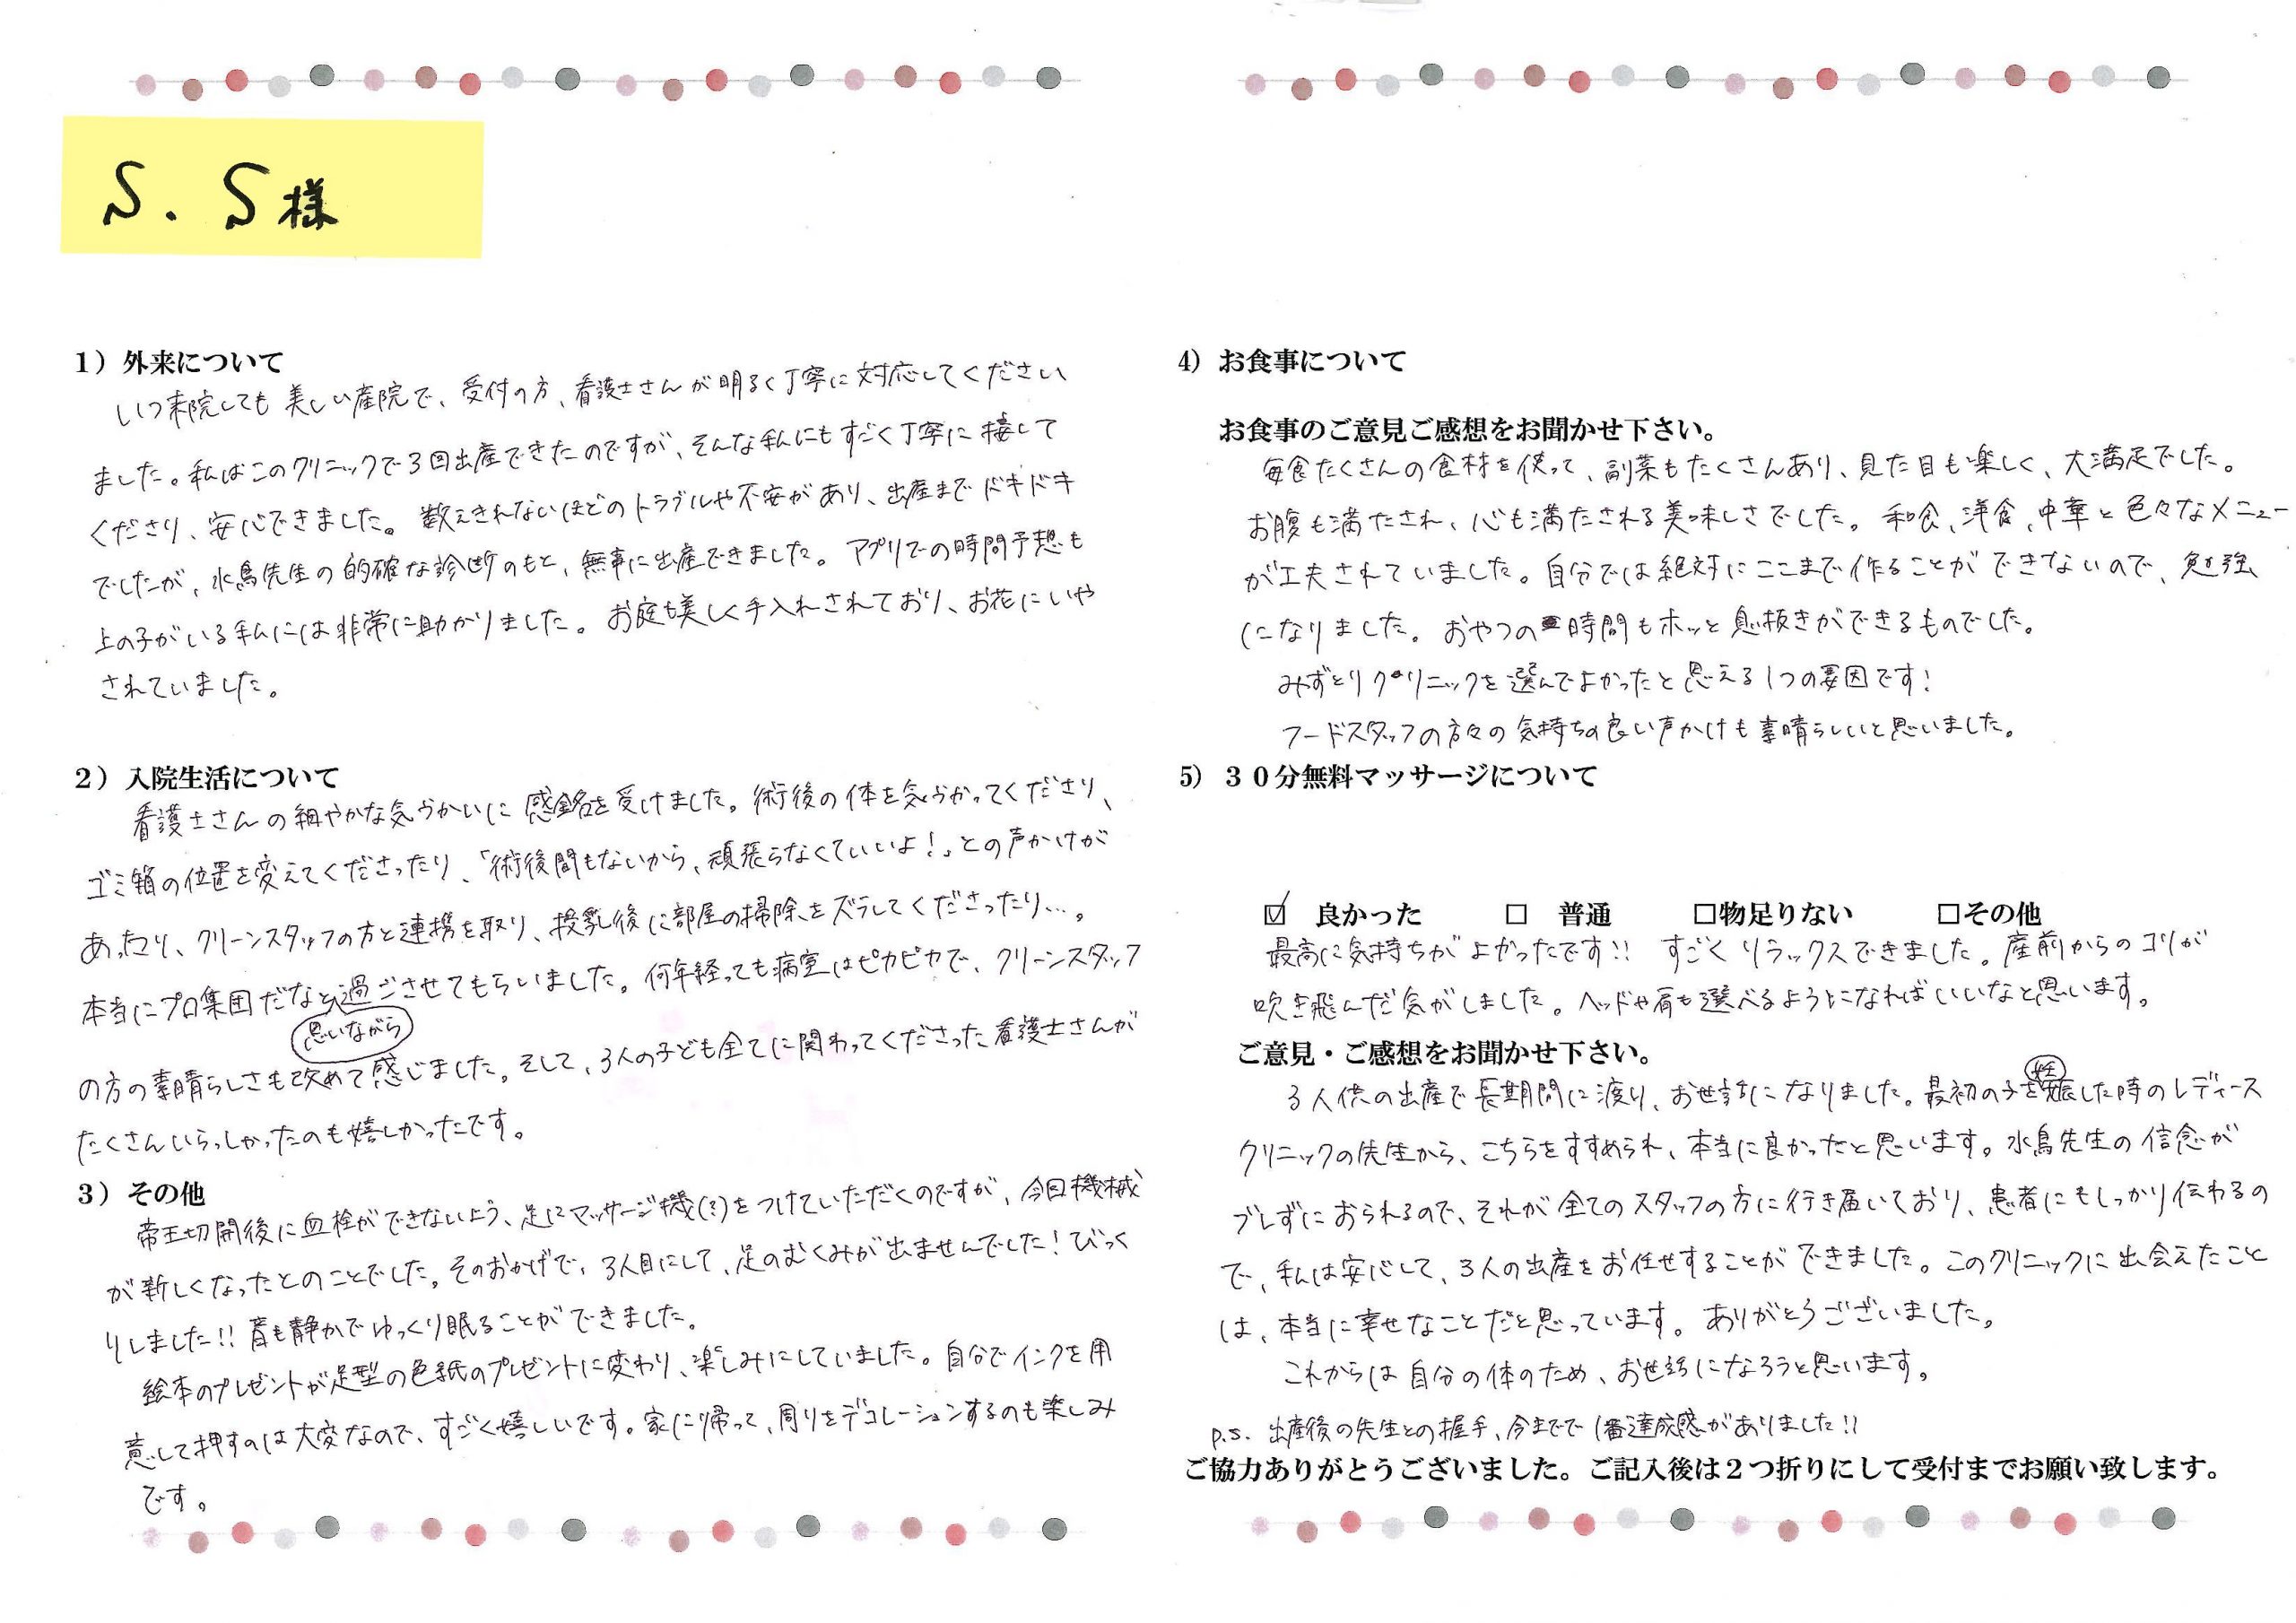 S. S様
1）外来について
いつ来院しても美しい産院で、受付の方、看護士さんが明るく丁寧に対応してください
ました。私はこのクリニックで3回出産できたのですが、そんな私にもすごく丁寧に接して
くださり、安心できました。数えきれないほどのトラブルや不安があり、出産までドキドキ
でしたが、水鳥先生の的確な診断のもと、無事に出産できました。アプリでの時間予想も
上の子がいる私には非常に助かりました。お庭も美しく手入れされており、お花にいや
されていました。
2）入院生活について
看護士さんの細やかな気づかいに感銘を受けました。術後の体を気づかってくださり、
ゴミ箱の位置を変えてくださったり、「術後間もないから、頑張らなくていいよ！」との声かけが
あったり、クリーンスタッフの方と連携を取り、授乳後に部屋の掃除をズラしてくださったり…。
本当にプロ集団だなと過ごさせてもらいました。何年経っても病室はピカピカで、クリーンスタッフ
思いながら
の方の素晴らしさも改めて感じました。そして、3人の子ども全てに関わってくださった看護士さんが
たくさんいらっしゃったのも嬉しかったです。
3）その他
帝王切開後に血栓ができないよう、足にマッサージ機(?)をつけていただくのですが、今回機械
が新しくなったとのことでした。そのおかげで、3人目にして、足のむくみが出ませんでした！びっく
りしました!! 音も静かでゆっくり眠ることができました。
絵本のプレゼントが足型の色紙のプレゼントに変わり、楽しみにしていました。自分でインクを用
意して押すのは大変なので、すごく嬉しいです。家に帰って、周りをデコレーションするのも楽しみ
です。
4）お食事について
お食事のご意見ご感想をお聞かせ下さい。
毎食たくさんの食材を使って、副菜もたくさんあり、見た目も楽しく、大満足でした。
お腹も満たされ、心も満たされる美味しさでした。和食、洋食、中華と色々なメニュー
が工夫されていました。自分では絶対にここまで作ることができないので、勉強
になりました。おやつの時間もホッと息抜きができるものでした。
みずとりクリニックを選んでよかったと思える1つの要因です！
フードスタッフの方々の気持ちの良い声かけも素晴らしいと思いました。
5）３０分無料マッサージについて
☑ 良かった □ 普通 □物足りない □その他
最高に気持ちがよかったです!! すごくリラックスできました。産前からのコリが
吹き飛んだ気がしました。ヘッドや肩も選べるようになればいいなと思います。
ご意見・ご感想をお聞かせ下さい。
妊
3人供の出産で長期間に渡り、お世話になりました。最初の子を娠した時のレディース
クリニックの先生から、こちらをすすめられ、本当に良かったと思います。水鳥先生の信念が
ブレずにおられるので、それが全てのスタッフの方に行き届いており、患者にもしっかり伝わるの
で、私は安心して、3人の出産をお任せすることができました。このクリニックに出会えたこと
は、本当に幸せなことだと思っています。ありがとうございました。
これからは自分の体のため、お世話になろうと思います。
P.S. 出産後の先生との握手、今までで1番達成感がありました!!
ご協力ありがとうございました。ご記入後は２つ折りにして受付までお願い致します。